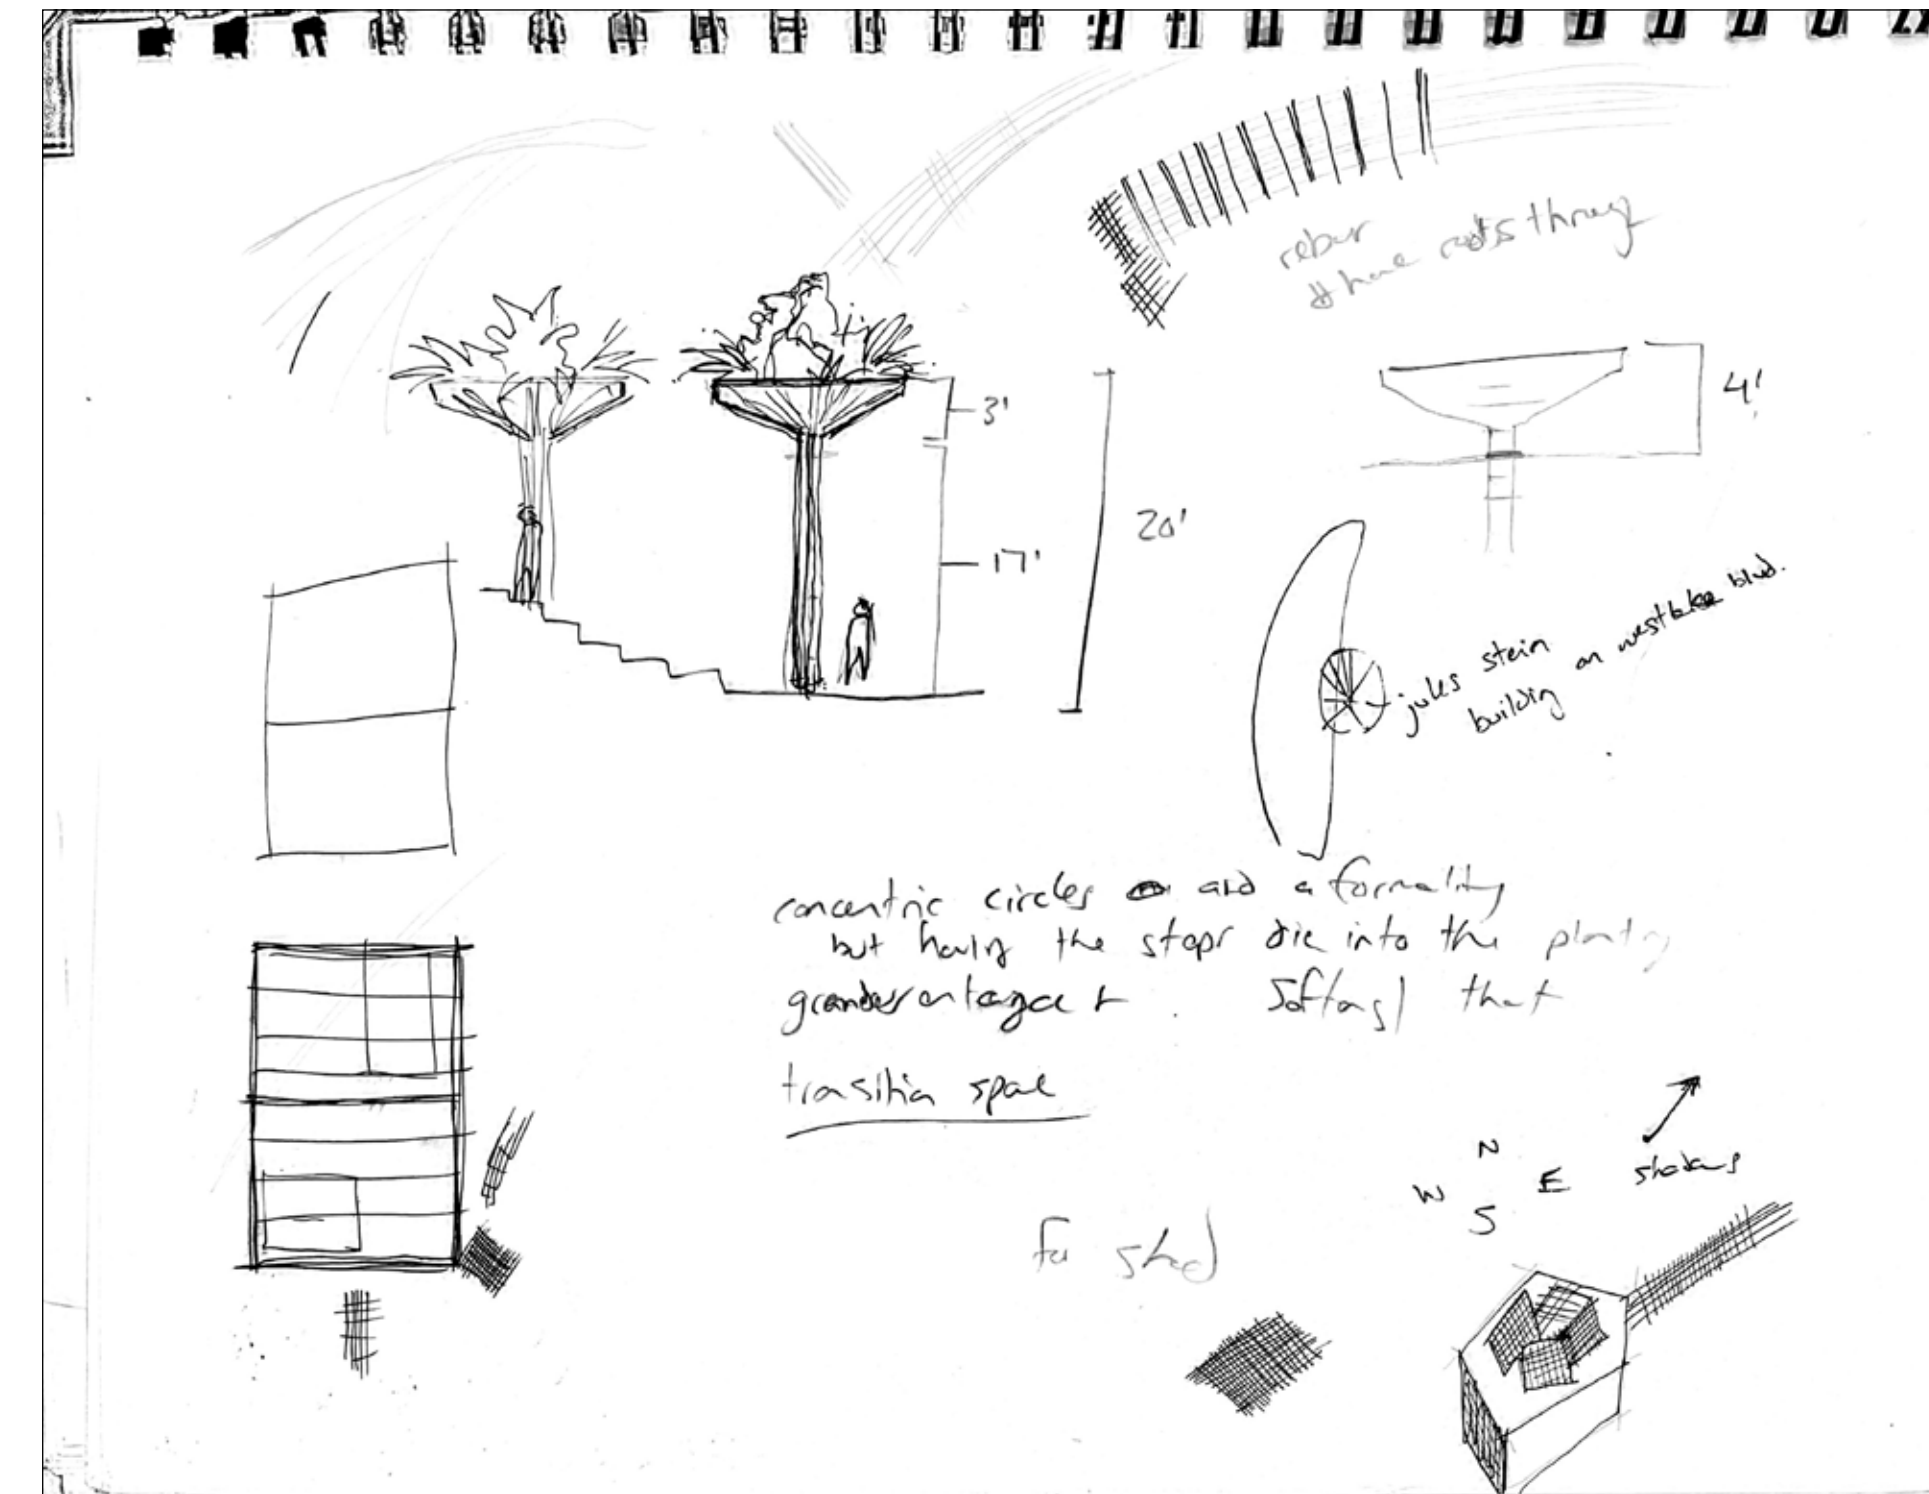 rebar
have roots through
3'
17'
20'
4'
jules stein
building on westlake blvd.
concentric circles and a formality
but having the steps die into the planting
softens that
transition space
N
W E
S
shadows
for shed